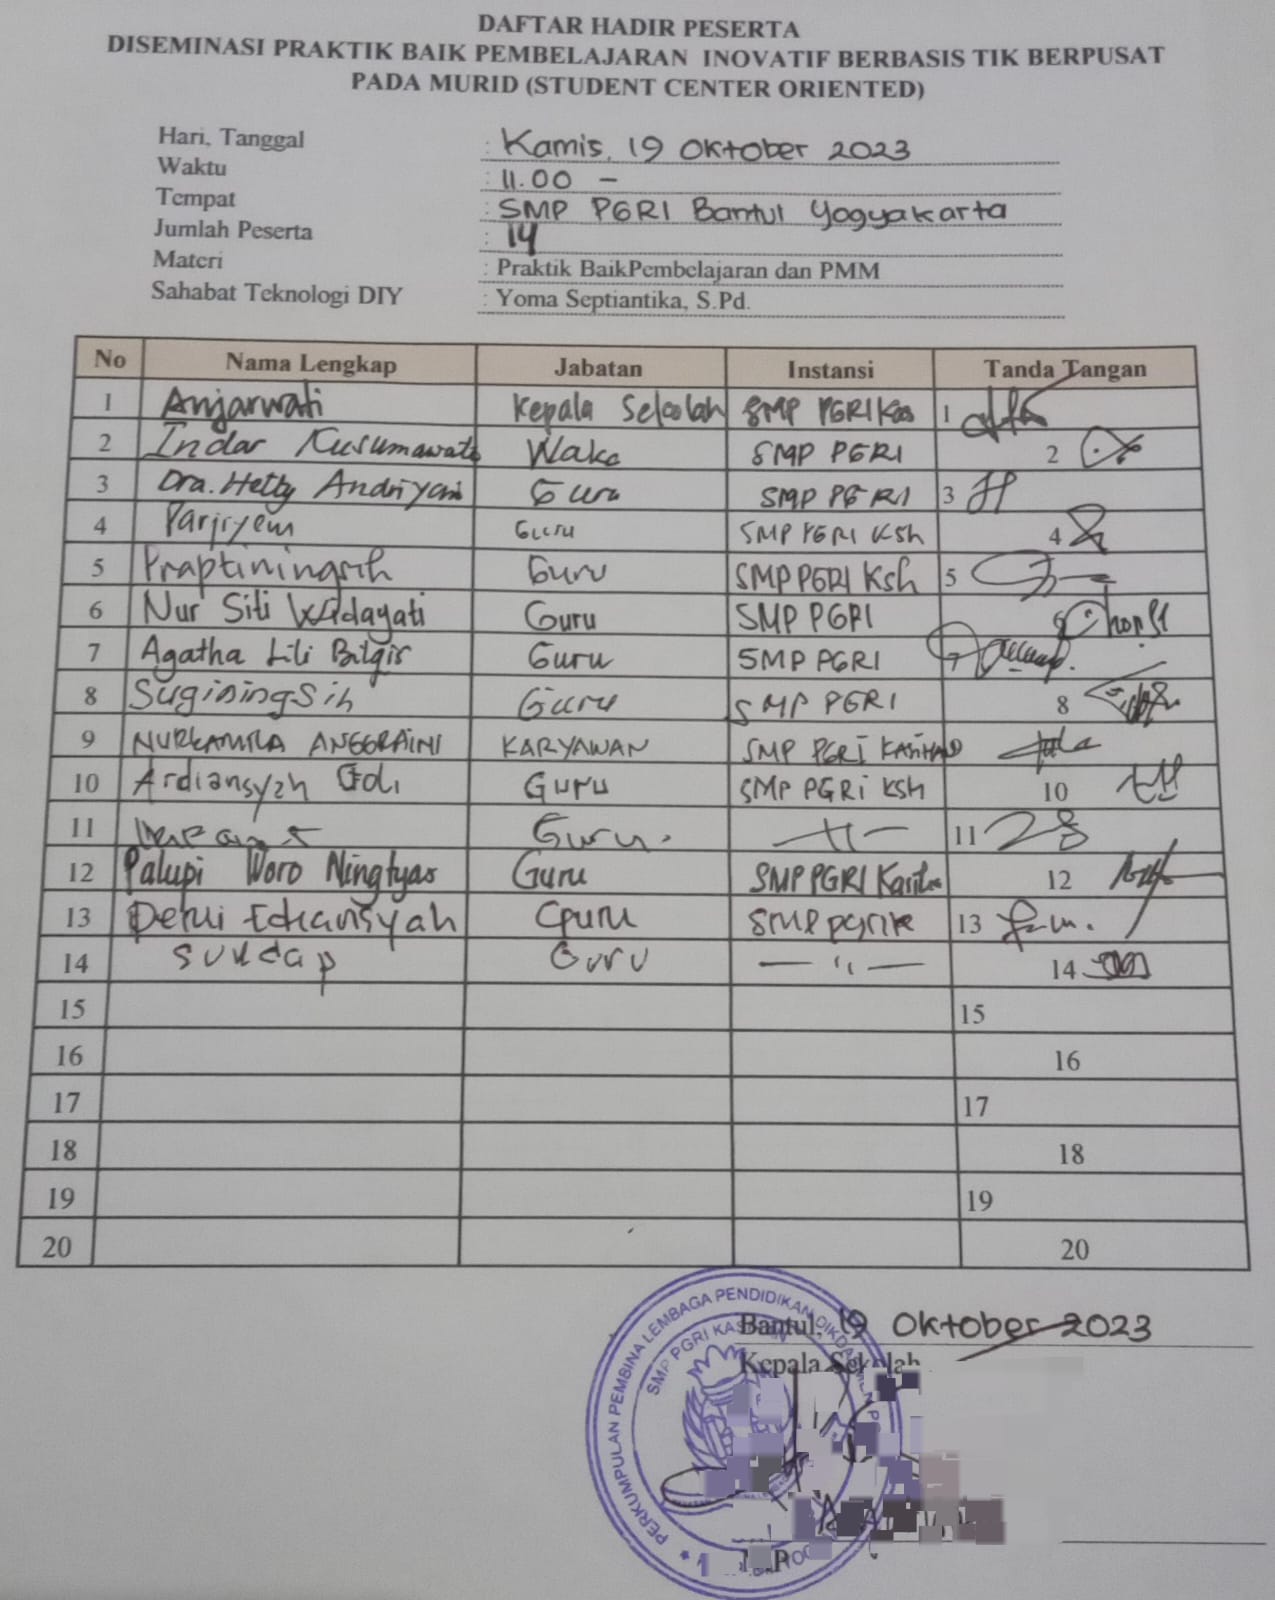 DAFTAR HADIR PESERTA
DISEMINASI PRAKTIK BAIK PEMBELAJARAN INOVATIF BERBASIS TIK BERPUSAT
PADA MURID (STUDENT CENTER ORIENTED)
Hari, Tanggal : Kamis, 19 Oktober 2023
Waktu : 11.00 -
Tempat : SMP PGRI Bantul Yogyakarta
Jumlah Peserta : 14
Materi : Praktik BaikPembelajaran dan PMM
Sahabat Teknologi DIY : Yoma Septiantika, S.Pd.
No Nama Lengkap Jabatan Instansi Tanda Tangan
1 Anjarwati Kepala Sekolah SMP PGRI Kas 1
2 Indar Kusumawati Waka SMP PGRI 2
3 Dra. Hetty Andriyani Guru SMP PGRI 3
4 Parjiyem Guru SMP PGRI Ksh 4
5 Praptiningsih Guru SMP PGRI Ksh 5
6 Nur Siti Widayati Guru SMP PGRI 6
7 Agatha Lili Bilgis Guru SMP PGRI 7
8 Suginingsih Guru SMP PGRI 8
9 NURKAMILA ANGGRAINI KARYAWAN SMP PGRI KASIHAN 9
10 Ardiansyah Edi Guru SMP PGRI Ksh 10
11 Guru. — 11 — 11
12 Palupi Woro Ningtyas Guru SMP PGRI 12
13 Guru SMP pgri 13
14 Guru — " — 14
15 15
16 16
17 17
18 18
19 19
20 20
Bantul, 19 Oktober 2023
Kepala Sekolah
PERKUMPULAN PEMBINA LEMBAGA PENDIDIKAN DIKDASMEN
SMP PGRI KASIHAN